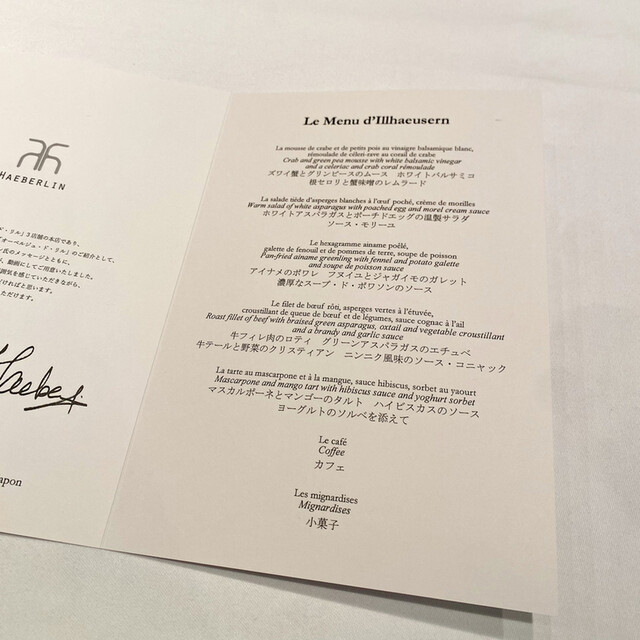 HAEBERLIN
ド・リル」3店舗の本店であり、
「オーベルジュ・ド・リル」のご紹介として、
氏のメッセージとともに、
Haeberli
apon
Le Menu d'Illhaeusern
La mousse de crabe et de petits pois au vinaigre balsamique blanc,
rémoulade de céleri-rave au corail de crabe
Crab and green pea mousse with white balsamic vinegar
and a celeriac and crab coral rémoulade
ズワイ蟹とグリンピースのムース　ホワイトバルサミコ
根セロリと蟹味噌のレムラード
La salade tiède d'asperges blanches à l'œuf poché, crème de morilles
Warm salad of white asparagus with poached egg and morel cream sauce
ホワイトアスパラガスとポーチドエッグの温製サラダ
ソース・モリーユ
Le hexagramme ainame poêlé,
galette de fenouil et de pommes de terre, soupe de poisson
Pan-fried ainame greenling with fennel and potato galette
and soupe de poisson sauce
アイナメのポワレ　フヌイユとジャガイモのガレット
濃厚なスープ・ド・ポワソンのソース
Le filet de bœuf rôti, asperges vertes à l'étuvée,
croustillant de queue de bœuf et de légumes, sauce cognac à l'ail
Roast fillet of beef with braised green asparagus, oxtail and vegetable croustillant
and a brandy and garlic sauce
牛フィレ肉のロティ　グリーンアスパラガスのエチュベ
牛テールと野菜のクリスティアン　ニンニク風味のソース・コニャック
La tarte au mascarpone et à la mangue, sauce hibiscus, sorbet au yaourt
Mascarpone and mango tart with hibiscus sauce and yoghurt sorbet
マスカルポーネとマンゴーのタルト　ハイビスカスのソース
ヨーグルトのソルベを添えて
Le café
Coffee
カフェ
Les mignardises
Mignardises
小菓子